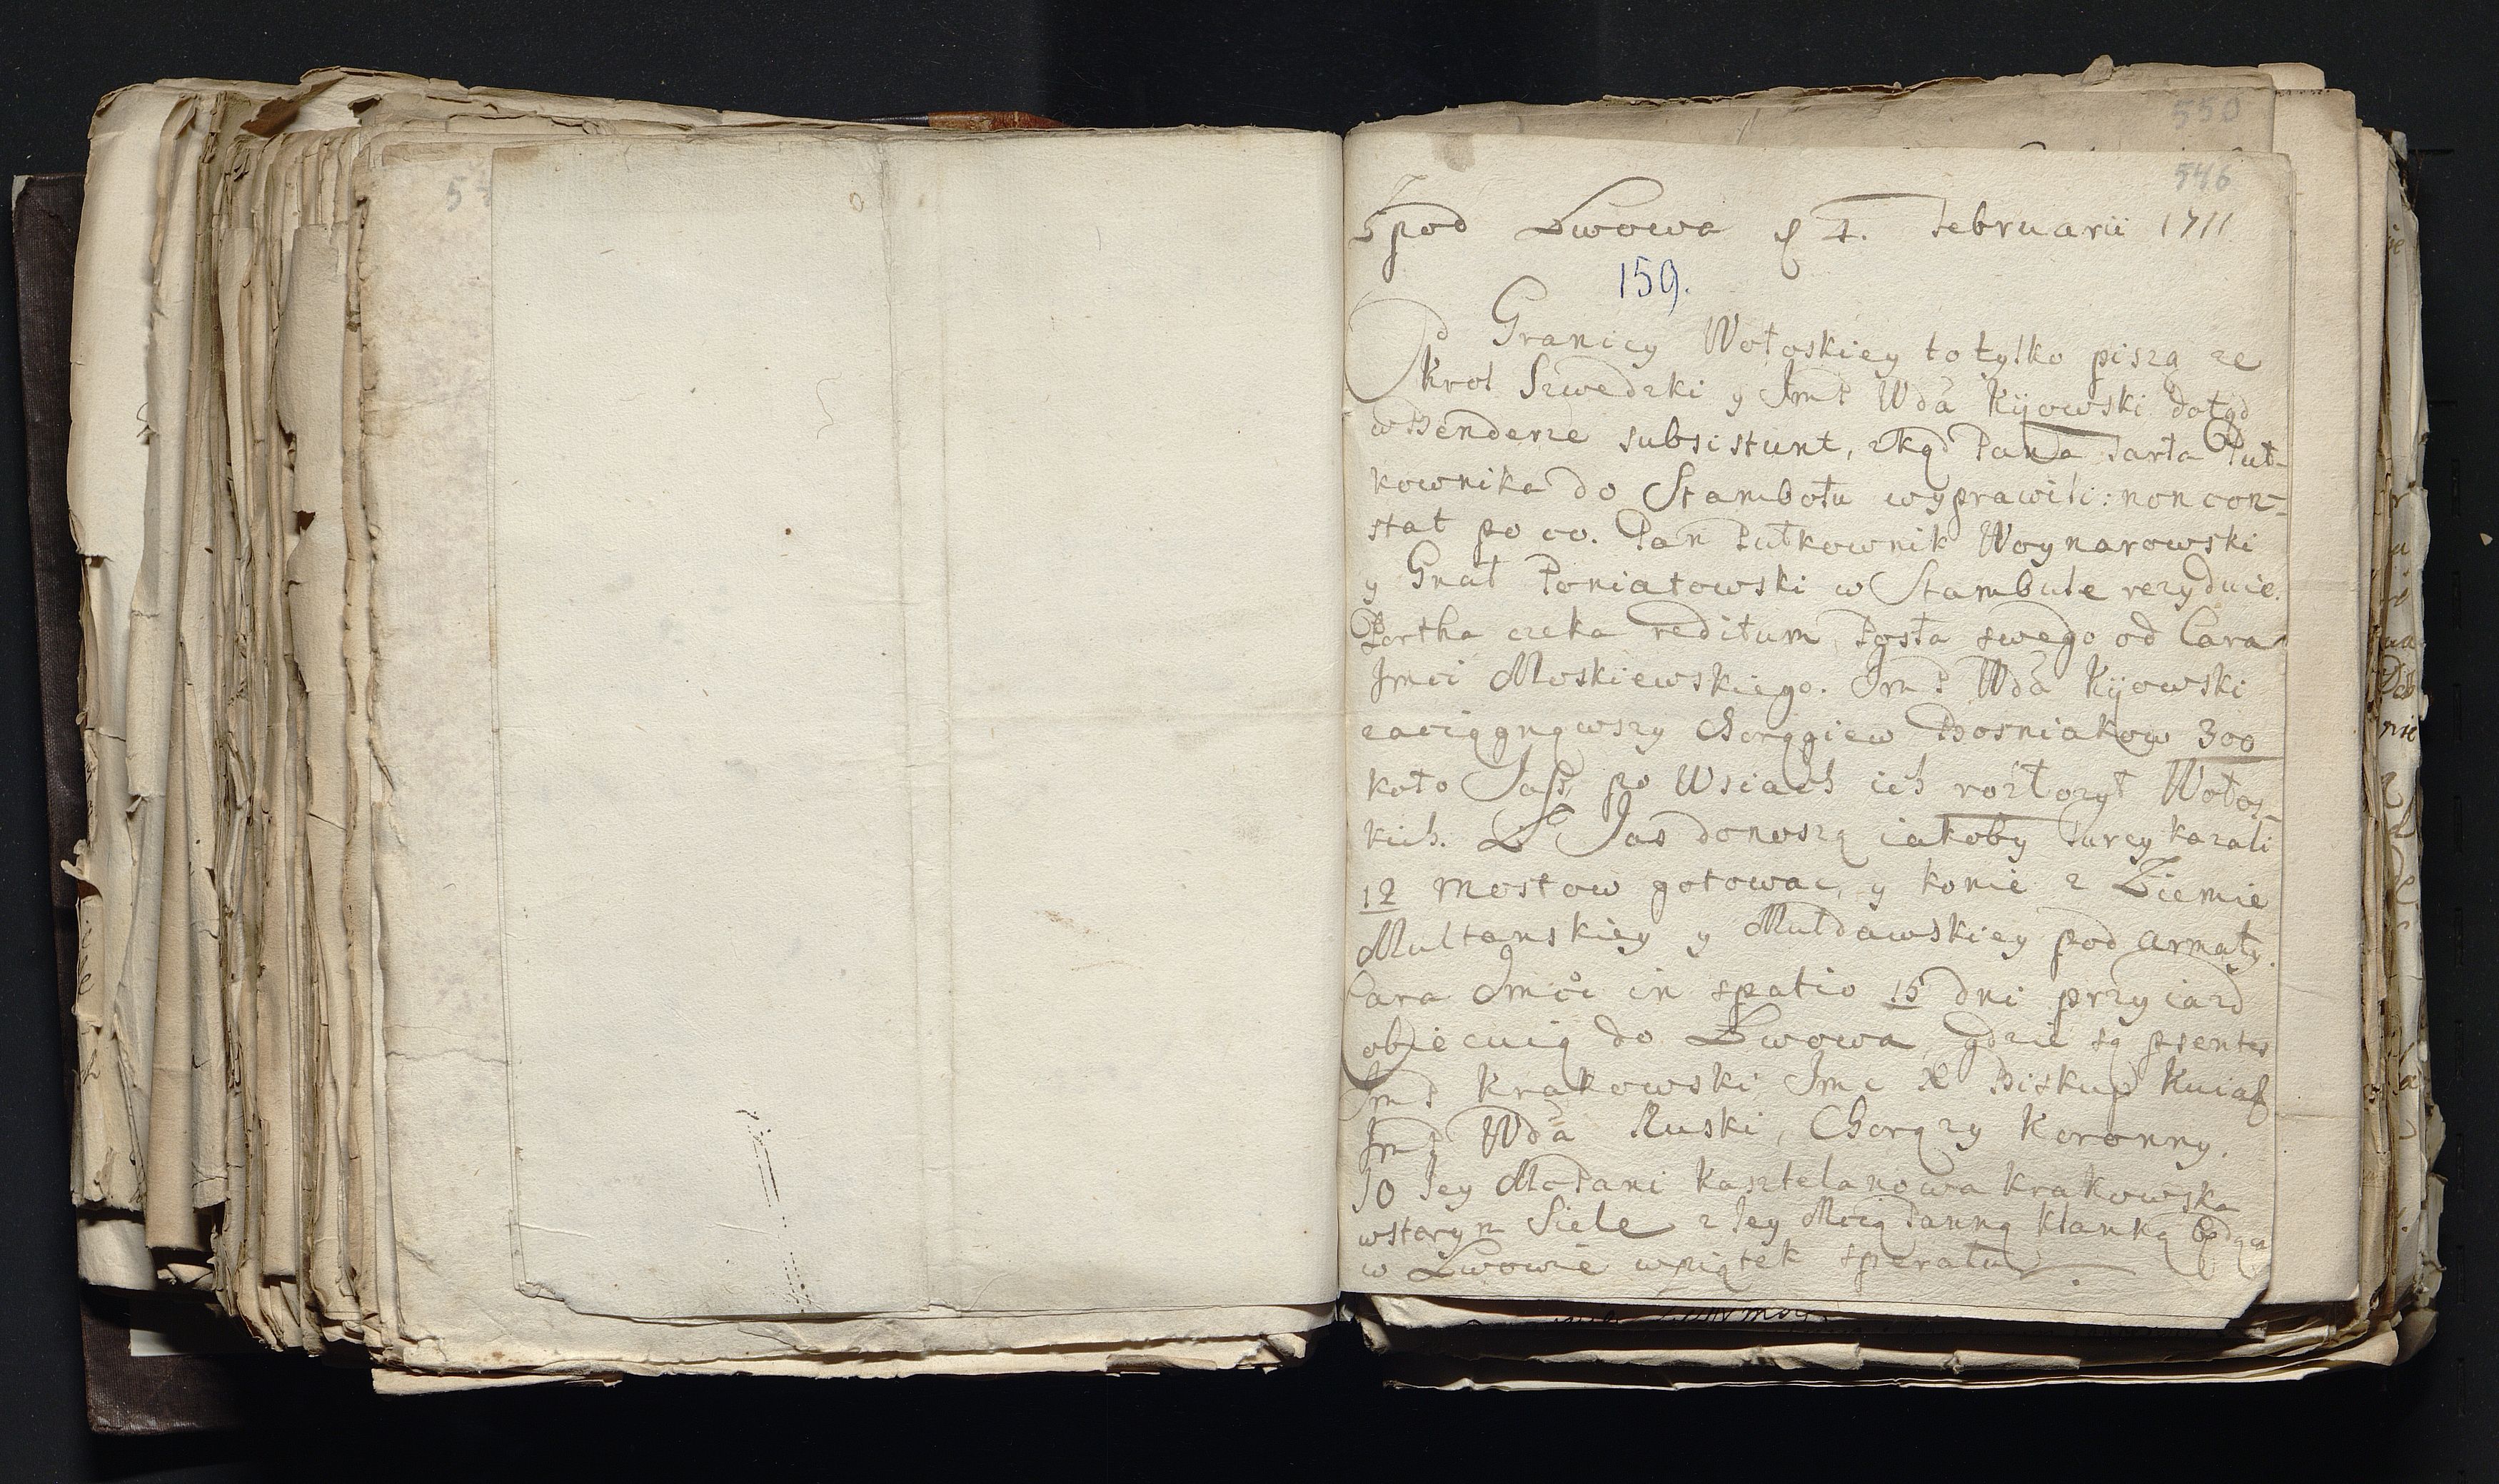 550
546
Zpod Lwowa d 4. Februarii 1711
159.
Od Granicy Wołoskiey to tylko piszą ze
Krol Szwedzki y Jmć Wda Kijowski dotąd
w Benderze subsistunt, zkąd Pana Tarła Puł-
kownika do Stambołu wyprawili: non con=
stat po co. Pan Pułkownik Woynarowski
y Gnał Poniatowski w Stambule rezyduie.
Portha czeka reditum Posła swego od Cara
Jmci Moskiewskiego. JmP Wda Kijowski
zaciągnąwszy Chorągiew Bosniakow 300
koło Jass po Wsiach ich rozłożył Wołos
kich. Z Jas donoszą iakoby Turcy kazali
12 mostow gotowac, y konie z Ziemie
Multanskiey y Mułdawskiey pod armaty.
Cara Jmci in spatio 15 dni przyiazd
obiecuią do Lwowa, gdzie są psentes
JmP Krakowski Jmc X Biskup Kuiaw
JmP Wda Ruski, Chorązy Koronny.
JO Jey Mć Pani Kasztelanowa Krakowska
w starym Siele z Jey Mcią Panną Klanką będąca
w Lwowie w piątek speratur.